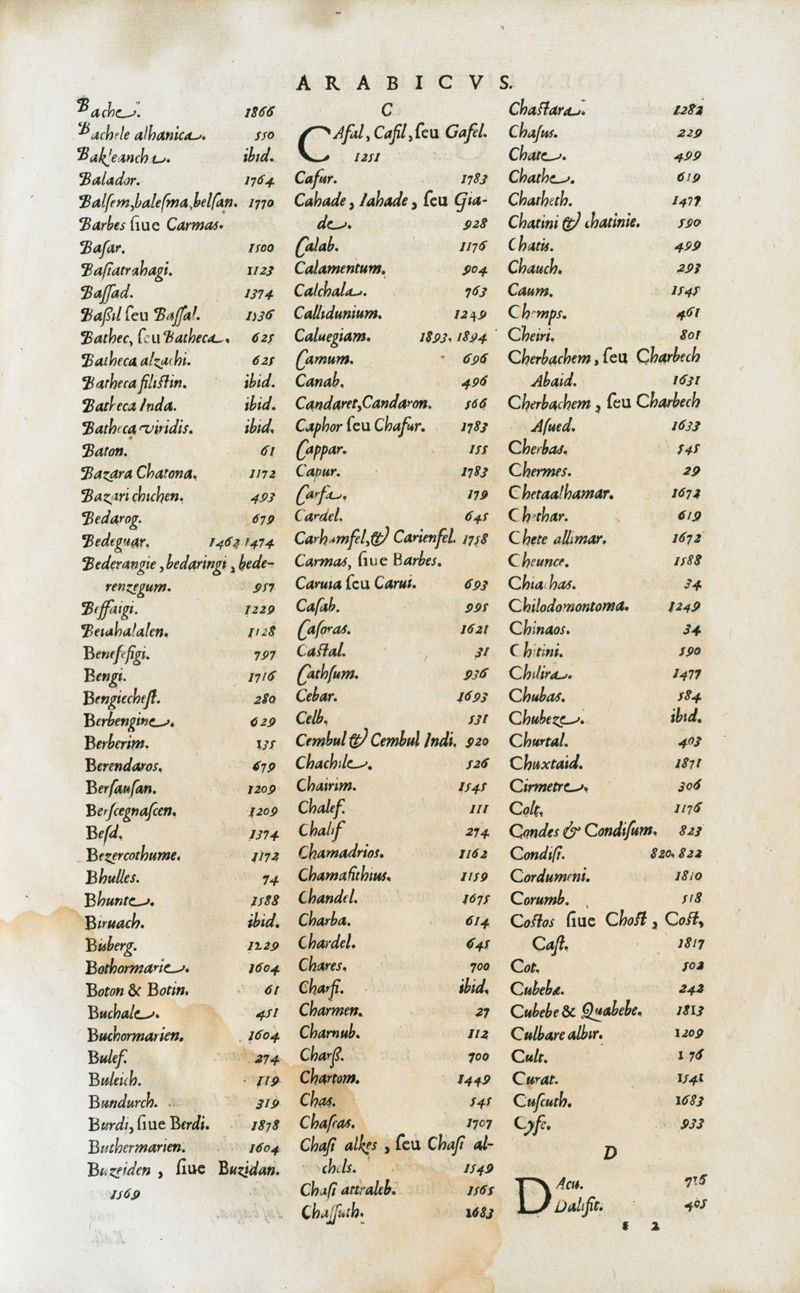 ARABICVS.
Bache. 1866
Bachele alhanica. 550
Bakleanche. ibid.
Balador. 1764
Balsem, balesma, belsan. 1770
Barbes ſiue Carmas.
Baſar. 1500
Baſiatrahagi. 1123
Baſſad. 1374
Baßil ſeu Baſſal. 1536
Bathec, ſeu Batheca. 625
Batheca alzachi. 625
Batheca filiſtin. ibid.
Batheca Inda. ibid.
Batheca viridis. ibid.
Baton. 61
Bazara Chatona. 1172
Bazari chichen. 493
Bedarog. 679
Bedeguar. 1462 1474
Bederangie, bedaringi, bede-
renzegum. 957
Beſſaigi. 1229
Betahalalen. 1128
Beneſeſigi. 797
Bengi. 1716
Bengiecheſt. 280
Berbengine. 629
Berberim. 135
Berendaros. 679
Berſauſan. 1209
Berſcegnaſcen. 1209
Beſd. 1374
Bezercothume. 1172
Bhulles. 74
Bhunte. 1588
Biruach. ibid.
Bisberg. 1229
Bothormarie. 1604
Boton & Botin. 61
Buchale. 451
Buchormarien. 1604
Bulef. 274
Buleich. 119
Bundurch. 319
Burdi, ſiue Berdi. 1878
Buthermarien. 1604
Buzeiden, ſiue Buzidan.
1569
C
CAſal, Caſil, ſeu Gaſel.
1251
Caſur. 1783
Cahade, Iahade, ſeu Gia-
de. 928
Calab. 1176
Calamentum. 904
Calchala. 763
Callidunium. 1249
Caluegiam. 1893. 1894
Camum. 696
Canab. 496
Candaret, Candaron. 566
Caphor ſeu Chafur. 1783
Cappar. 155
Capur. 1783
Carfa. 179
Cardel. 645
Carhumfel, & Carienfel. 1758
Carmas, ſiue Barbes.
Caruia ſeu Carui. 693
Caſab. 995
Caſoras. 1621
Caſtal. 31
Cathſum. 936
Cebar. 1693
Celb. 531
Cembul & Cembul Indi. 920
Chachile. 526
Chairim. 1545
Chalef. 111
Chalif 274
Chamadrios. 1162
Chamaſithius. 1159
Chandel. 1675
Charba. 614
Chardel. 645
Chares. 700
Charſi. ibid.
Charmen. 27
Charnub. 112
Charß. 700
Chartom. 1449
Chas. 545
Chaſeas. 1707
Chaſi alkes, ſeu Chaſi al-
chels. 1549
Chaſi attraleb. 1565
Chaſſuth. 1683
Chaſtara. 1282
Chaſus. 229
Chate. 499
Chathe. 619
Chatheth. 1477
Chatini & chatinie. 590
Chatis. 499
Chauch. 293
Caum. 1545
Chemps. 461
Cheiri. 801
Cherbachem, ſeu Charbech
Abaid. 1631
Cherbachem, ſeu Charbech
Aſued. 1633
Cherbas. 545
Chermes. 29
Chetaalhamar. 1672
Chethar. 619
Chete allimar. 1672
Cheunce. 1588
Chiachas. 34
Chilodomontoma. 1249
Chinaos. 34
Chitini. 590
Chilira. 1477
Chubas. 584
Chubeze. ibid.
Churtal. 403
Chuxtaid. 1871
Cirmetre. 306
Colt. 1176
Condes & Condiſum. 823
Condiſi. 820. 822
Cordumeni. 1810
Corumb. 518
Coſtos ſiue Choſt, Coſt,
Caſt. 1817
Cot. 502
Cubeba. 242
Cubebe & Quabebe. 1813
Culbare albir. 1209
Cult. 1 76
Curat. 1541
Cuſcuth. 1683
Cyfe. 933
D
DAcu. 716
Daliſit. 405
s 2